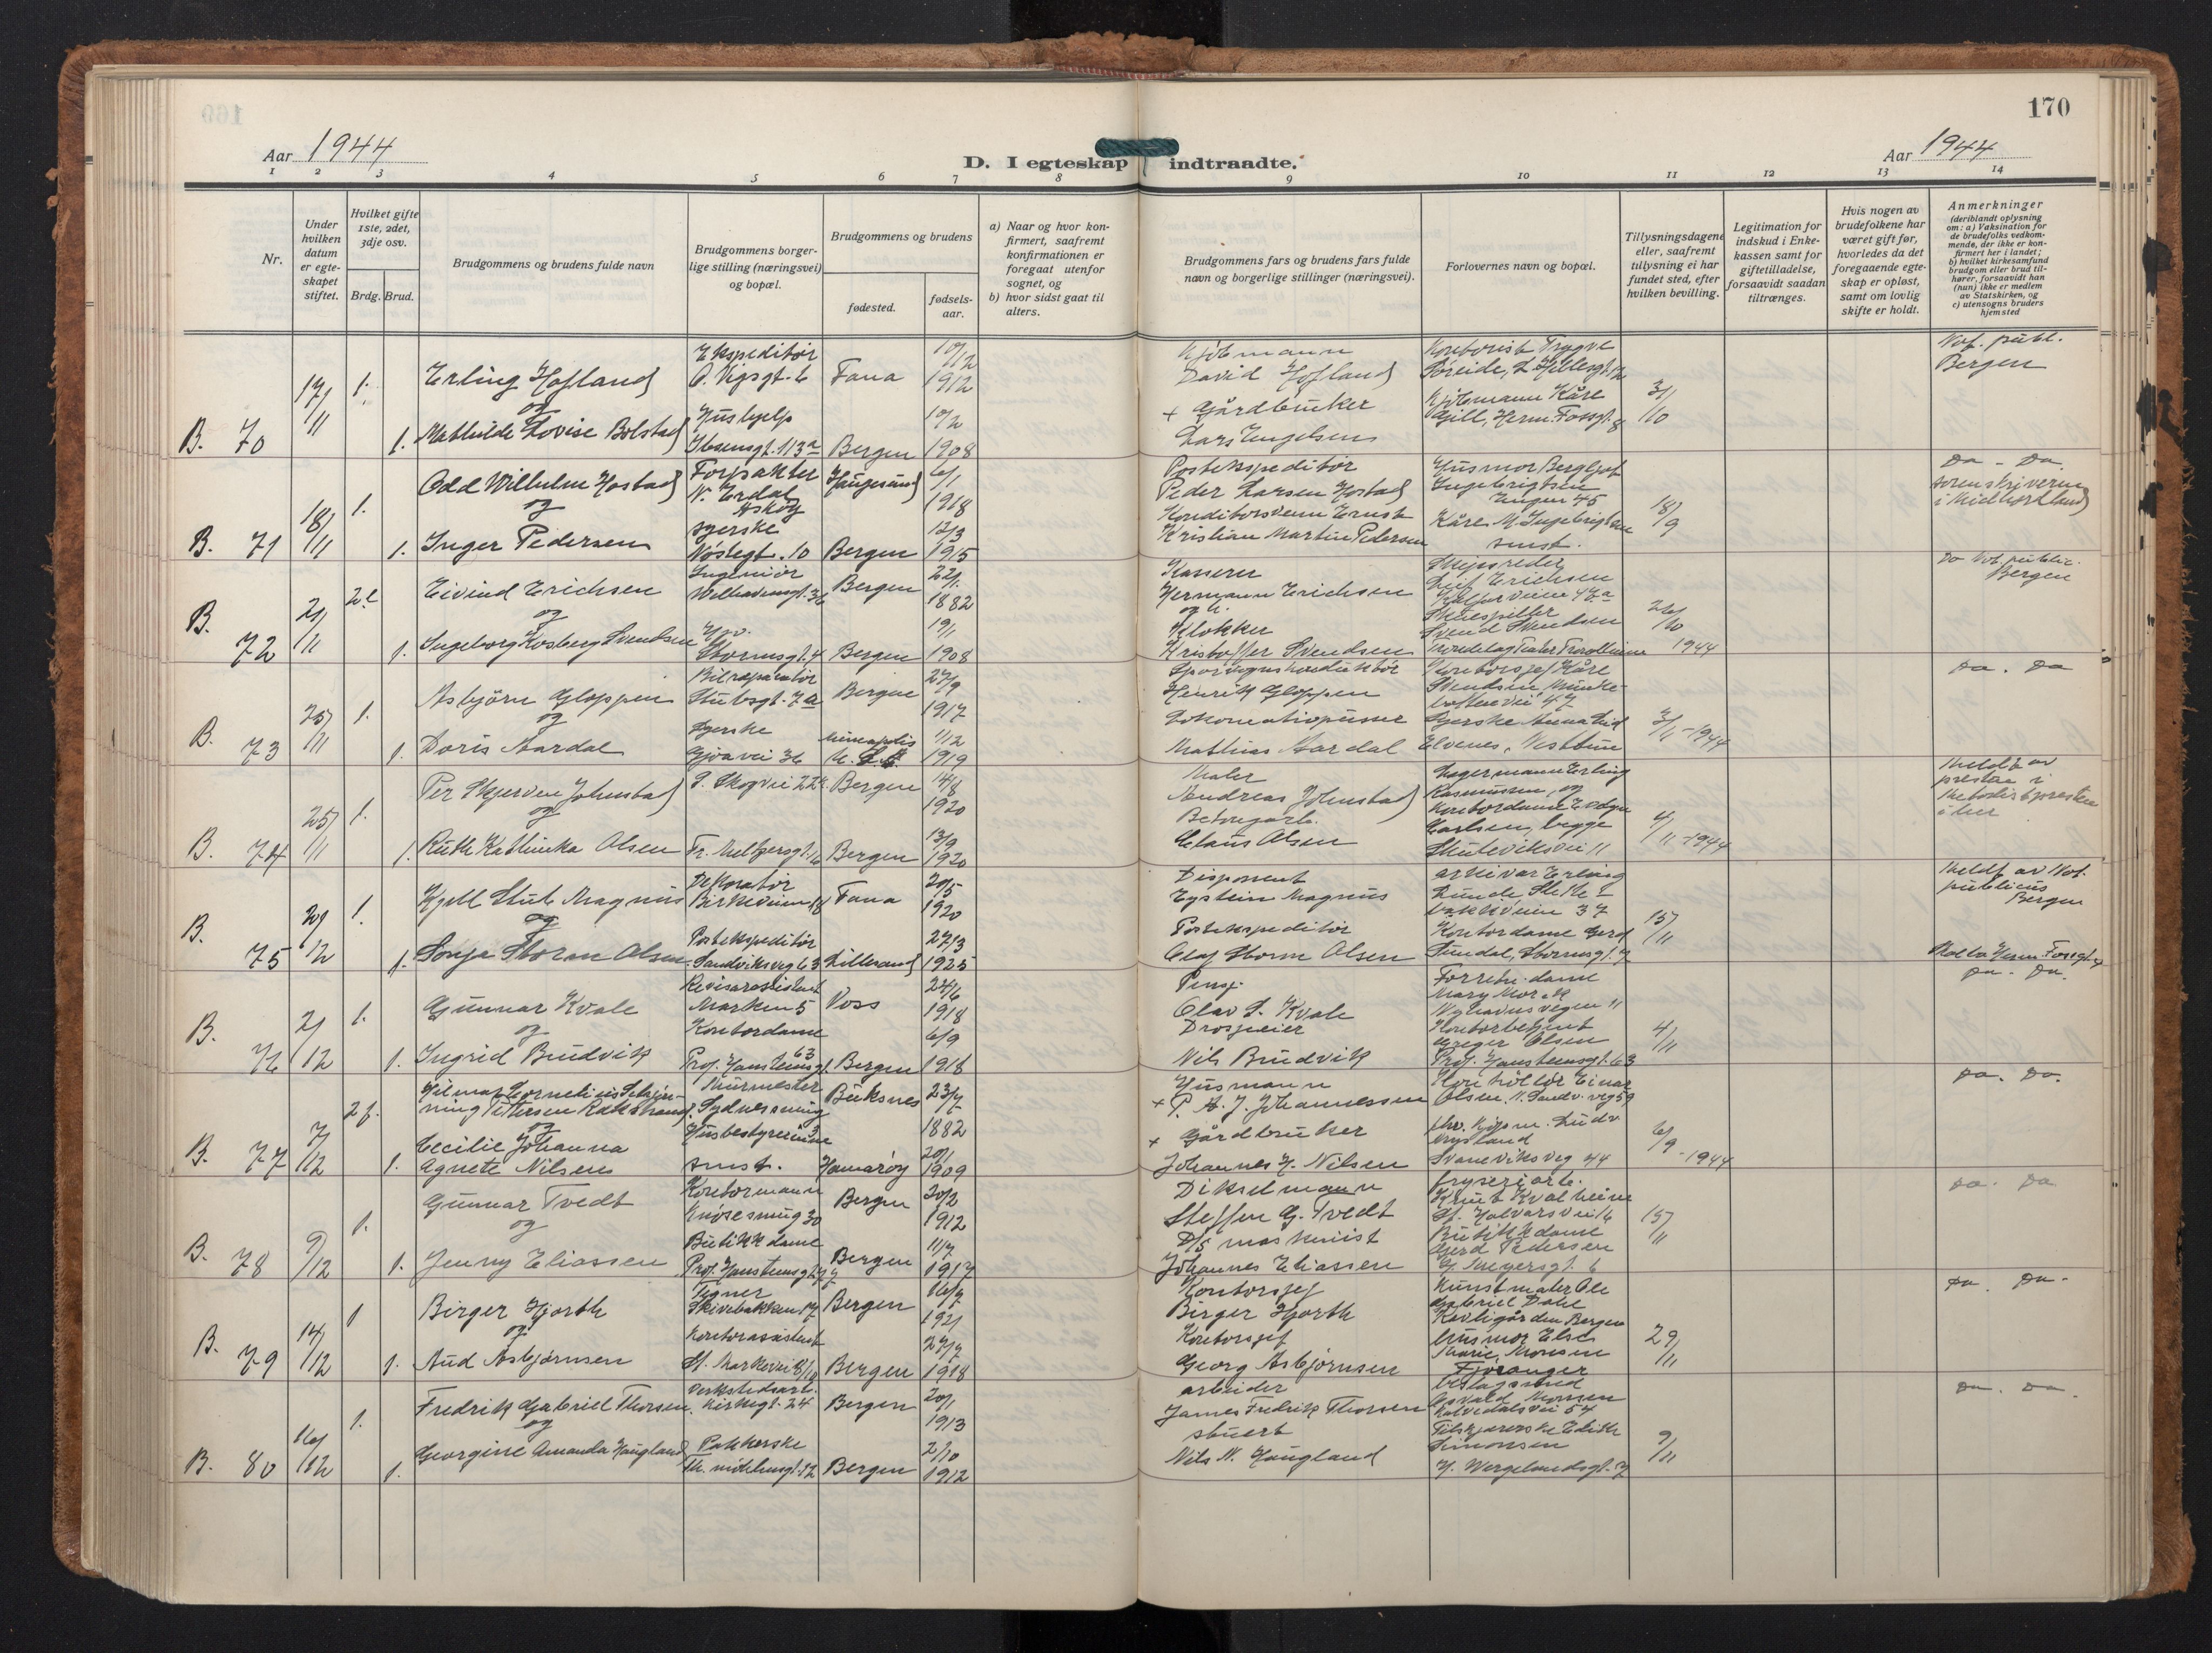 170
Aar 1944
D. I egteskap indtraadte.
Aar 1944
1 2 3 4 5 6 7 8 9 10 11 12 13 14
Nr.
Under hvilken datum er egteskapet stiftet.
Hvilket gifte 1ste, 2det, 3dje osv.
Brdg. Brud.
Brudgommens og brudens fulde navn
Brudgommens borgerlige stilling (næringsvei) og bopæl.
Brudgommens og brudens
fødested.
fødselsaar.
a) Naar og hvor konfirmert, saafremt konfirmationen er foregaat utenfor sognet, og
b) hvor sidst gaat til alters.
Brudgommens fars og brudens fars fulde navn og borgerlige stillinger (næringsvei).
Forlovernes navn og bopæl.
Tillysningsdagene eller, saafremt tillysning ei har fundet sted, efter hvilken bevilling.
Legitimation for indskud i Enkekassen samt for giftetilladelse, forsaavidt saadan tiltrænges.
Hvis nogen av brudefolkene har været gift før, hvorledes da det foregaaende egteskap er opløst, samt om lovlig skifte er holdt.
Anmerkninger
(deriblandt oplysning om: a) Vaksination for de brudefolks vedkommende, der ikke er konfirmert her i landet; b) hvilket kirkesamfund brudgom eller brud tilhører, forsaavidt han (hun) ikke er medlem av Statskirken, og c) utensogns bruders hjemsted
B. 70 17/11 1. Erling Hofland Ekspeditör Fana 10/12 1912 Kjöbmann David Hofland Not. publ. Bergen
og
1. Mathilde Lovise Bolstad Hushjelp Ibsensgt. 113a Bergen 10/2 1908 + Gårdbruker Lars Engelsen Kjöbmann Kåre Gjill, Herm. Fossgt. 8 3/10
B. 71 18/11 1. Odd Wilhelm Hostad Forpakter N. Erdal Askøy Haugesund 6/1 1918 Postekspeditör Peder Larsen Hostad Husmor Bergljot Ingebrigtsen Engen 45 18/9 Do - Do. sorenskriveren i Midthordland
og
1. Inger Pedersen syerske Nöstegt. 10 Bergen 12/3 1915 Konditorsvenn Ernst Kristian Martin Pedersen Kåre M. Ingebrigtsen smst.
B. 72 2/11 2e Eivind Erichsen Ingeniör Welhavensgt. 36 Bergen 22/1 1882 Kasserer Hermann Erichsen Skipsreder Leif Erichsen Kalfarveien 47a Do Not. public. Bergen
og
1. Ingeborg Kosberg Svendsen Stormsgt. 4 Bergen 19/1 1908 Klokker Kristoffer Svendsen Skuespiller Svend Svendsen 26/10 1944
B. 73 25/11 1. Asbjörn Gloppen Bilreparatör Stubsgt. 7a Bergen 27/9 1917 Sporvognskonduktör Henrik Gloppen Kontorsjef Kåre Svendsen Do. Do
og
1. Doris Aardal Syerske Gjöavei 36 1/12 1919 Lokomotivpusser Mathias Aardal Syerske Anna Lid Elvenes, Nesttun 3/11-1944
B. 74 25/11 1. Per Skjerven Johnstad P. Skogvei 22 Bergen 14/8 1920 Maler Andreas Johnstad Lagermann Erling Rasmussen, og Meldt av presten i
og
1. Ruth Kathinka Olsen Fr. Meltzersgt. 16 Bergen 13/9 1920 Betongarb. Claus Olsen Carlsen, begge Skuteviksvei 11 4/11-1944
B. 75 2/12 1. Kjell Stub Magnus Dekoratör Birkeveien 18 Fana 20/5 1920 Disponent Eystein Magnus Arkivar Erling Lunde Meldt av Not. publicus Bergen
og
1. Sonja Storm Olsen Postekspeditör Sandviksveg 63 Lillesand 27/3 1925 Postekspeditör Olaf Storm Olsen Kontordame Gerd Sundal, Stormsgt. 7 15/11
B. 76 2/12 1. Gunnar Kvale Revisorassistent Marken 5 Voss 24/6 1918 Pensj. Olav S. Kvale Forretn. dame Mary Mork Nyhavnsvegen 11 Do. Do.
og
1. Ingrid Brudvik Kontordame Prof. Hansteensgt. 63 Bergen 6/9 1918 Droskeeier Nils Brudvik Kontorbetjent Greger Olsen Prof. Hansteensgt. 63 4/11
B. 77 7/12 2g. Hilmar Cornelius Pettersen Rakstrand Murmester Sydnessmug Buksnes 23/7 1882 Husmann + P. A. J. Johannessen Kontrollör Einar Olsen, N. Sandv. veg 59 Do. Do.
og
1. Cecilie Johanna Agnete Nilsen Husbestyrerinne smst. Hamaröy 20/1 1909 + Gårdbruker Johannes H. Nilsen Svaneviksveg 44 6/9-1944
B. 78 9/12 1. Gunnar Tvedt Kontormann Knösesmug 30 Bergen 20/2 1912 Dikselmann Steffen G. Tvedt fryseriarb. Knut Kvalheim St. Halvarsvei 16 Do. Do
og
1. Jenny Eliassen Butikkdame Prof. Hansteensgt. 77 Bergen 11/7 1917 D/S maskinist Johannes Eliassen Butikkdame Gerd Pedersen G. Meyersgt. 6 15/11
B. 79 14/12 1 Birger Hjorth Tegner Skivebakken 17 Bergen 16/7 1921 Kontorsjef Birger Hjorth Kunstmaler Ole Gabriel Dahl Do. Do.
og
1. Aud Asbjörnsen Kontorassistent St. Markevei 8/10 Bergen 27/7 1918 Kontorsjef Georg Asbjörnsen husmor Else Marie Monsen Fjösanger 29/11
B. 80 16/12 1. Fredrik Gabriel Thorsen Verkstedsarb. Kirkegt. 24 Bergen 20/1 1913 arbeider James Fredrik Thorsen Osvald Monsen Kalvedalsvei 54 Do. Do.
og
1. Georgine Amanda Haugland Pakkerske Bergen 2/10 1912 stuert Nils N. Haugland Tilskjærerske Edith Simonsen H. Wergelandsgt. 7 9/11